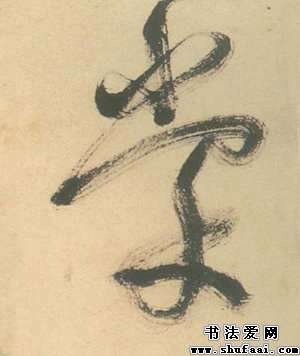 学
书法爱网
www.shufaai.com